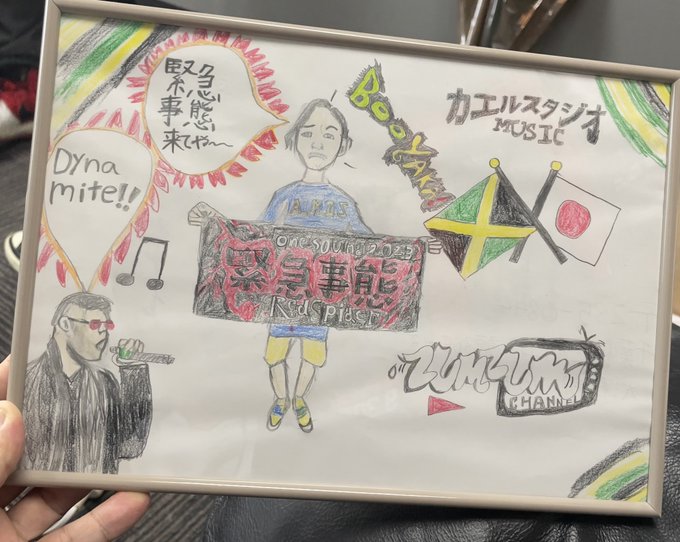 緊急
事態
来てや〜
Dyna
mite!!
BooYAKA
カエルスタジオ
MUSIC
A.P.I.S
One sound 2024
緊急事態
Red Spider
CHANNEL